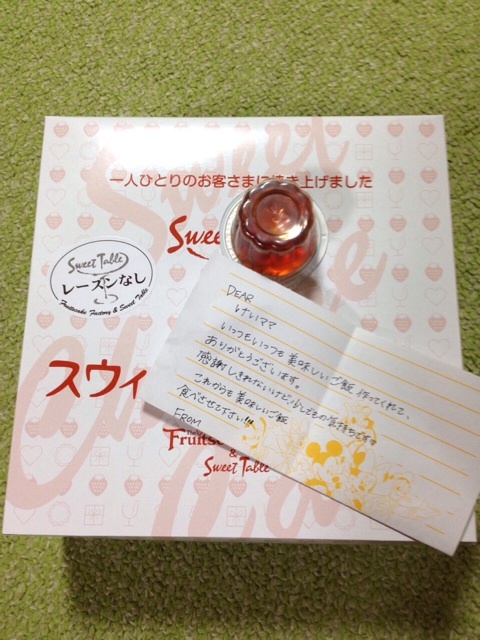 一人ひとりのお客さまに焼き上げました
Sweet
Sweet Table
レーズンなし
Fruitscake Factory & Sweet Table
スウィ
DEAR
けいママ
いつもいつも美味しいご飯作ってくれて、
ありがとうございます。
感謝しきれないけど、少しだけの気持ちです
これからも美味しいご飯
食べさせて下さい!!!
FROM
Fruits
&
Sweet Table